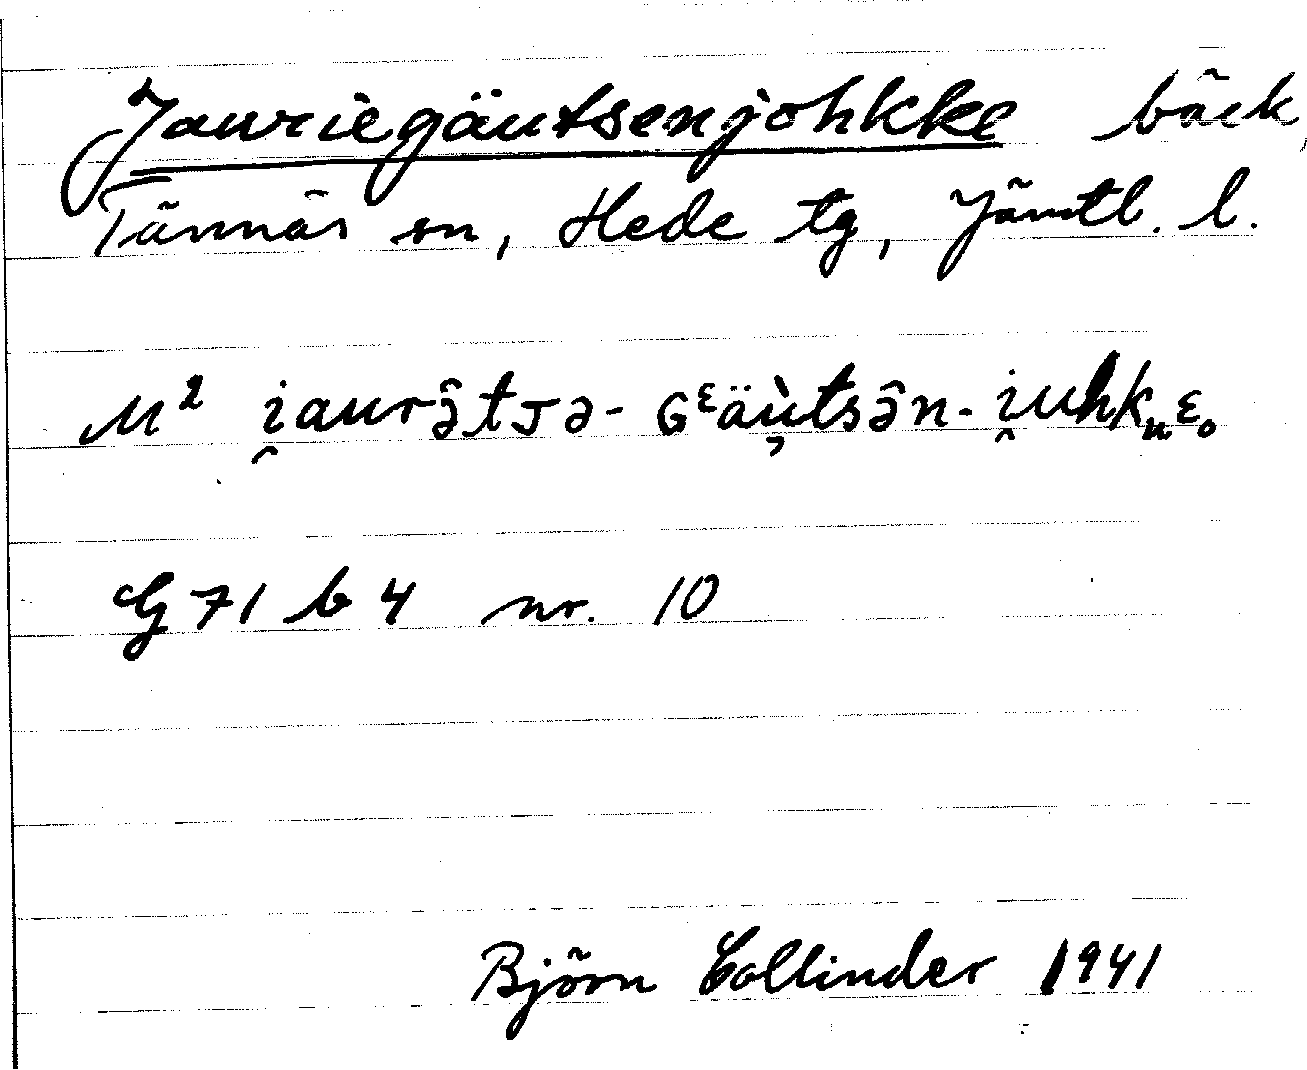 Jauriegäutsenjohkke bäck,
Tännäs sn, Hede tg, Jämtl. l.
M² i̯aurə̂tJə- Gᵋäùtsə̂n- i̯uhkₙɛ₀
G 71 b 4 nr. 10
Björn Collinder 1941